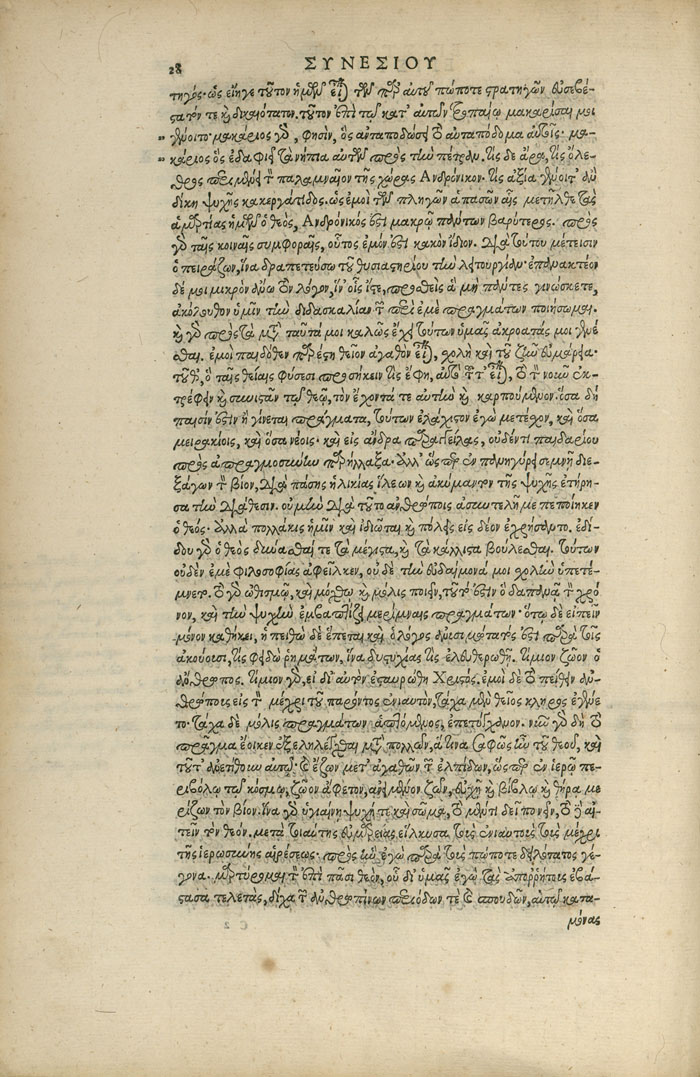 28 ΣΥΝΕΣΙΟΥ
τηγός· ὡς εἴηγε τοῦτον ἡμῶν εἶναι τῶν παρ' αὐτοῦ πώποτε στρατηγῶν εὐσεβέ-
στατόν τε καὶ δικαιότατον. τοῦτον ἐπὶ τῷ κατ' αὐτῶν τροπαίῳ μακαρίσαι μοι
γένοιτο· μακάριος γὰρ, φησὶν, ὃς ἀνταποδώσει τὸ ἀνταπόδομα αὐτοῖς· μα-
κάριος ὃς ἐδαφιεῖ τὰ νήπια αὐτῶν πρὸς τὴν πέτραν. τίς δε ἄρα, τίς ὄλε-
θρος περιμένει τὸν παλαμναῖον τῆς χώρας Ανδρόνικον. τίς ἀξία γένοιτ' ἂν
δίκη ψυχῆς κακεργάτιδος. ὡς ἐμοὶ τῶν πληγῶν ἁπασῶν αἷς μετῆλθε τὰς
ἁμαρτίας ἡμῶν ὁ θεὸς, Ανδρόνικός ἐστι μακρῷ πάντων βαρύτερος. πρὸς
γὰρ ταῖς κοιναῖς συμφοραῖς, οὗτος ἐμόν ἐστι κακὸν ἴδιον. διὰ τούτου μέτεισιν
ὁ πειράζων, ἵνα δραπετεύσω τοῦ θυσιαστηρίου τὴν λειτουργίαν· ἐπανακτέον
δέ μοι μικρὸν ἄνω τὸν λόγον, ἵν' οἷς ἴστε, προθεὶς ἃ μὴ πάντες γινώσκετε,
ἀκόλουθον ὑμῖν τὴν διδασκαλίαν τῶν περὶ ἐμὲ πραγμάτων ποιήσωμαι.
καὶ γὰρ πρὸς τὰ μετὰ ταῦτά μοι καλῶς ἔχει τούτων ὑμᾶς ἀκροατάς μοι γενέ
σθαι. ἐμοὶ παιδόθεν παρέστη θεῖον ἀγαθὸν εἶναι, σχολὴ καὶ τοῦ ζῆν εὐμάρεια·
τοῦθ', ὃ ταῖς θείαις φύσεσι προσήκειν τις ἔφη,
τρέφειν καὶ συνιστᾶν τῷ θεῷ, τὸν ἔχοντά τε αὐτὴν καὶ καρπούμενον. ὅσα δὴ
παισίν ἐστιν ἢ γίνεται πράγματα, τούτων ἐλάχιστον ἐγὼ μετέσχον, καὶ ὅσα
μειρακίοις, καὶ ὅσα νέοις· καὶ εἰς ἄνδρα παραγγείλας, οὐδέν τι παιδαρίου
πρὸς ἀπραγμοσύνην παρήλλαξα. ἀλλ' ὥσπερ ἐν πανηγύρει σεμνῇ διε-
ξάγων τὸν βίον, διὰ πάσης ἡλικίας ἵλεων καὶ ἀκύμαντον τῆς ψυχῆς ἐτήρη-
σα τὴν διάθεσιν. οὐ μὴν διὰ τοῦτο ἀνθρώποις ἀσυντελῆ με πεποίηκεν
ὁ θεός· ἀλλὰ πολλάκις ἡμῖν καὶ ἰδιῶται καὶ πόλεις εἰς δέον ἐχρήσαντο. ἐδί-
δου γὰρ ὁ θεὸς δύνασθαί τε τὰ μέγιστα, καὶ τὰ κάλλιστα βούλεσθαι. τούτων
οὐδὲν ἐμὲ φιλοσοφίας ἀφεῖλκεν, οὐδὲ τὴν εὐδαίμονά μοι σχολὴν ὑπετέ-
μνετο. τὸ γὰρ ὠθισμῷ, καὶ μόχθῳ καὶ μόλις ποιεῖν, τοῦτό ἐστιν ὃ δαπανᾷ τὸν χρό
νον, καὶ τὴν ψυχὴν ἐμβαπτίζει μερίμναις πραγμάτων· ὅτῳ δὲ εἰπεῖν
μόνον καθήκει, ἡ πειθὼ δὲ ἕπεται καὶ ὁ λόγος ἀνύσιμώτατός ἐστι παρὰ τοῖς
ἀκούουσι, τίς φειδὼ ῥημάτων, ἵνα δυστυχίας τις ἐλευθερωθῇ. τίμιον ζῶον ὁ
ἄνθρωπος. τίμιον γὰρ, εἰ δι' αὐτὸν ἐσταυρώθη Χριστός. ἐμοὶ δὲ τὸ πείθειν ἀν-
θρώποις εἰς τὸν μέχρι τοῦ παρόντος ἐνιαυτὸν, τάχα μὲν θεῖος κλῆρος ἐγένε
το· τάχα δὲ μόλις πραγμάτων ἁπτόμενος, ἐπετύγχανον. νῦν γὰρ δὴ τὸ
πρᾶγμα ἔοικεν ἐξεληλέγχθαι μετὰ πολλῶν, ἅτινα σαφῶς ἦν τοῦ θεοῦ, καὶ
τοῦτ' ἀνετίθουν αὐτῷ· καὶ ἔζων μετ' ἀγαθῶν τῶν ἐλπίδων, ὥσπερ ἐν ἱερῷ πε-
ριβόλῳ τῷ κόσμῳ, ζῶον ἄφετον, ἀνειμένον ζῶν, εὐχῇ καὶ βίβλῳ καὶ θήρᾳ με
ρίζων τὸν βίον. ἵνα γὰρ ὑγιαίνῃ ψυχή τε καὶ σῶμα, τὸ μέν τι δεῖ πονεῖν, τὸ δὲ αἰ-
τεῖν τὸν θεόν. μετὰ τοιαύτης εὐμαρείας εἵλκυσα, τοὺς ἐνιαυτοὺς τοὺς μέχρι
τῆς ἱερωσύνης αἱρέσεως· πρὸς ἣν ἐγὼ παρὰ τοὺς πώποτε δειλότατος γέ-
γονα. μαρτύρομαι τὸν ἐπὶ πᾶσι θεὸν, οὗ δι' ὑμᾶς ἐγὼ τὰς ἀπορρήτοις ἐβά-
στασα τελετὰς, δίχα τῶν ἀνθρωπίνων περιόδων τε καὶ σπουδῶν, αὐτῷ κατα-
μόνας